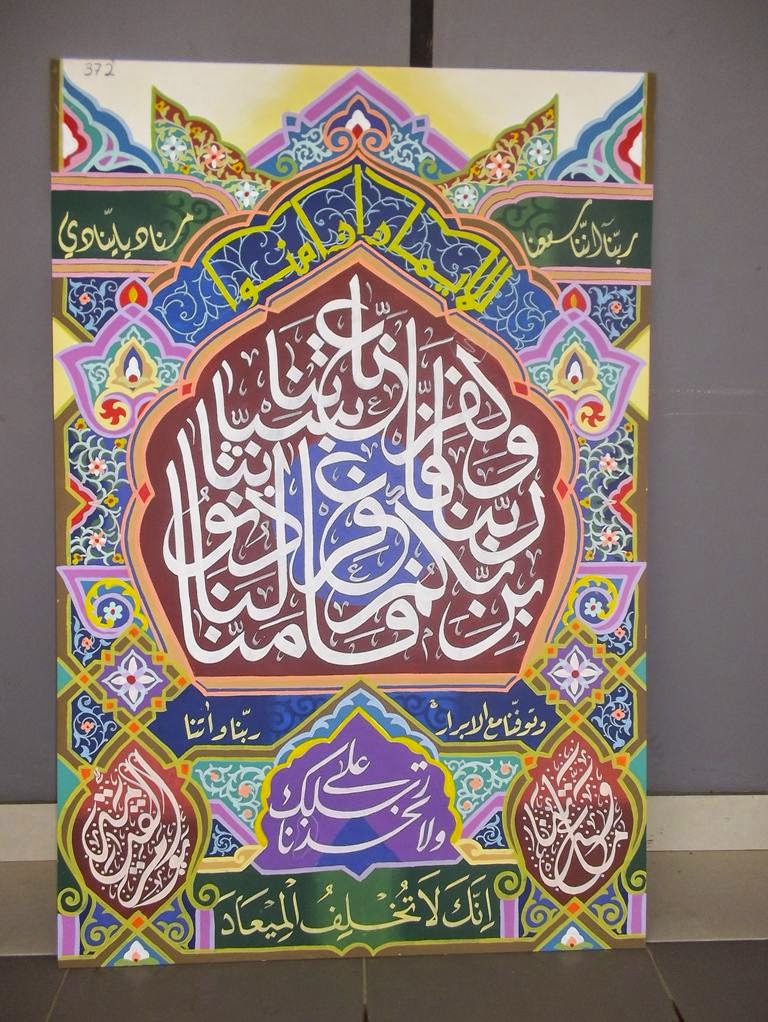 372
ربّنا انّنا سمعنا
مناديا ينّادي
للايمان ان امنوا
بربّكم فامنّا ربّنا فاغفر لنا ذنوبنا وكفّر عنّا سيّاتنا
وتوفّنا مع الابرار
ربّنا واٰتنا
ما وعدتنا
على رسلك
ولا تخزنا
يوم القيٰمة
اِنَّكَ لَا تُخْلِفُ الْمِيْعَادَ